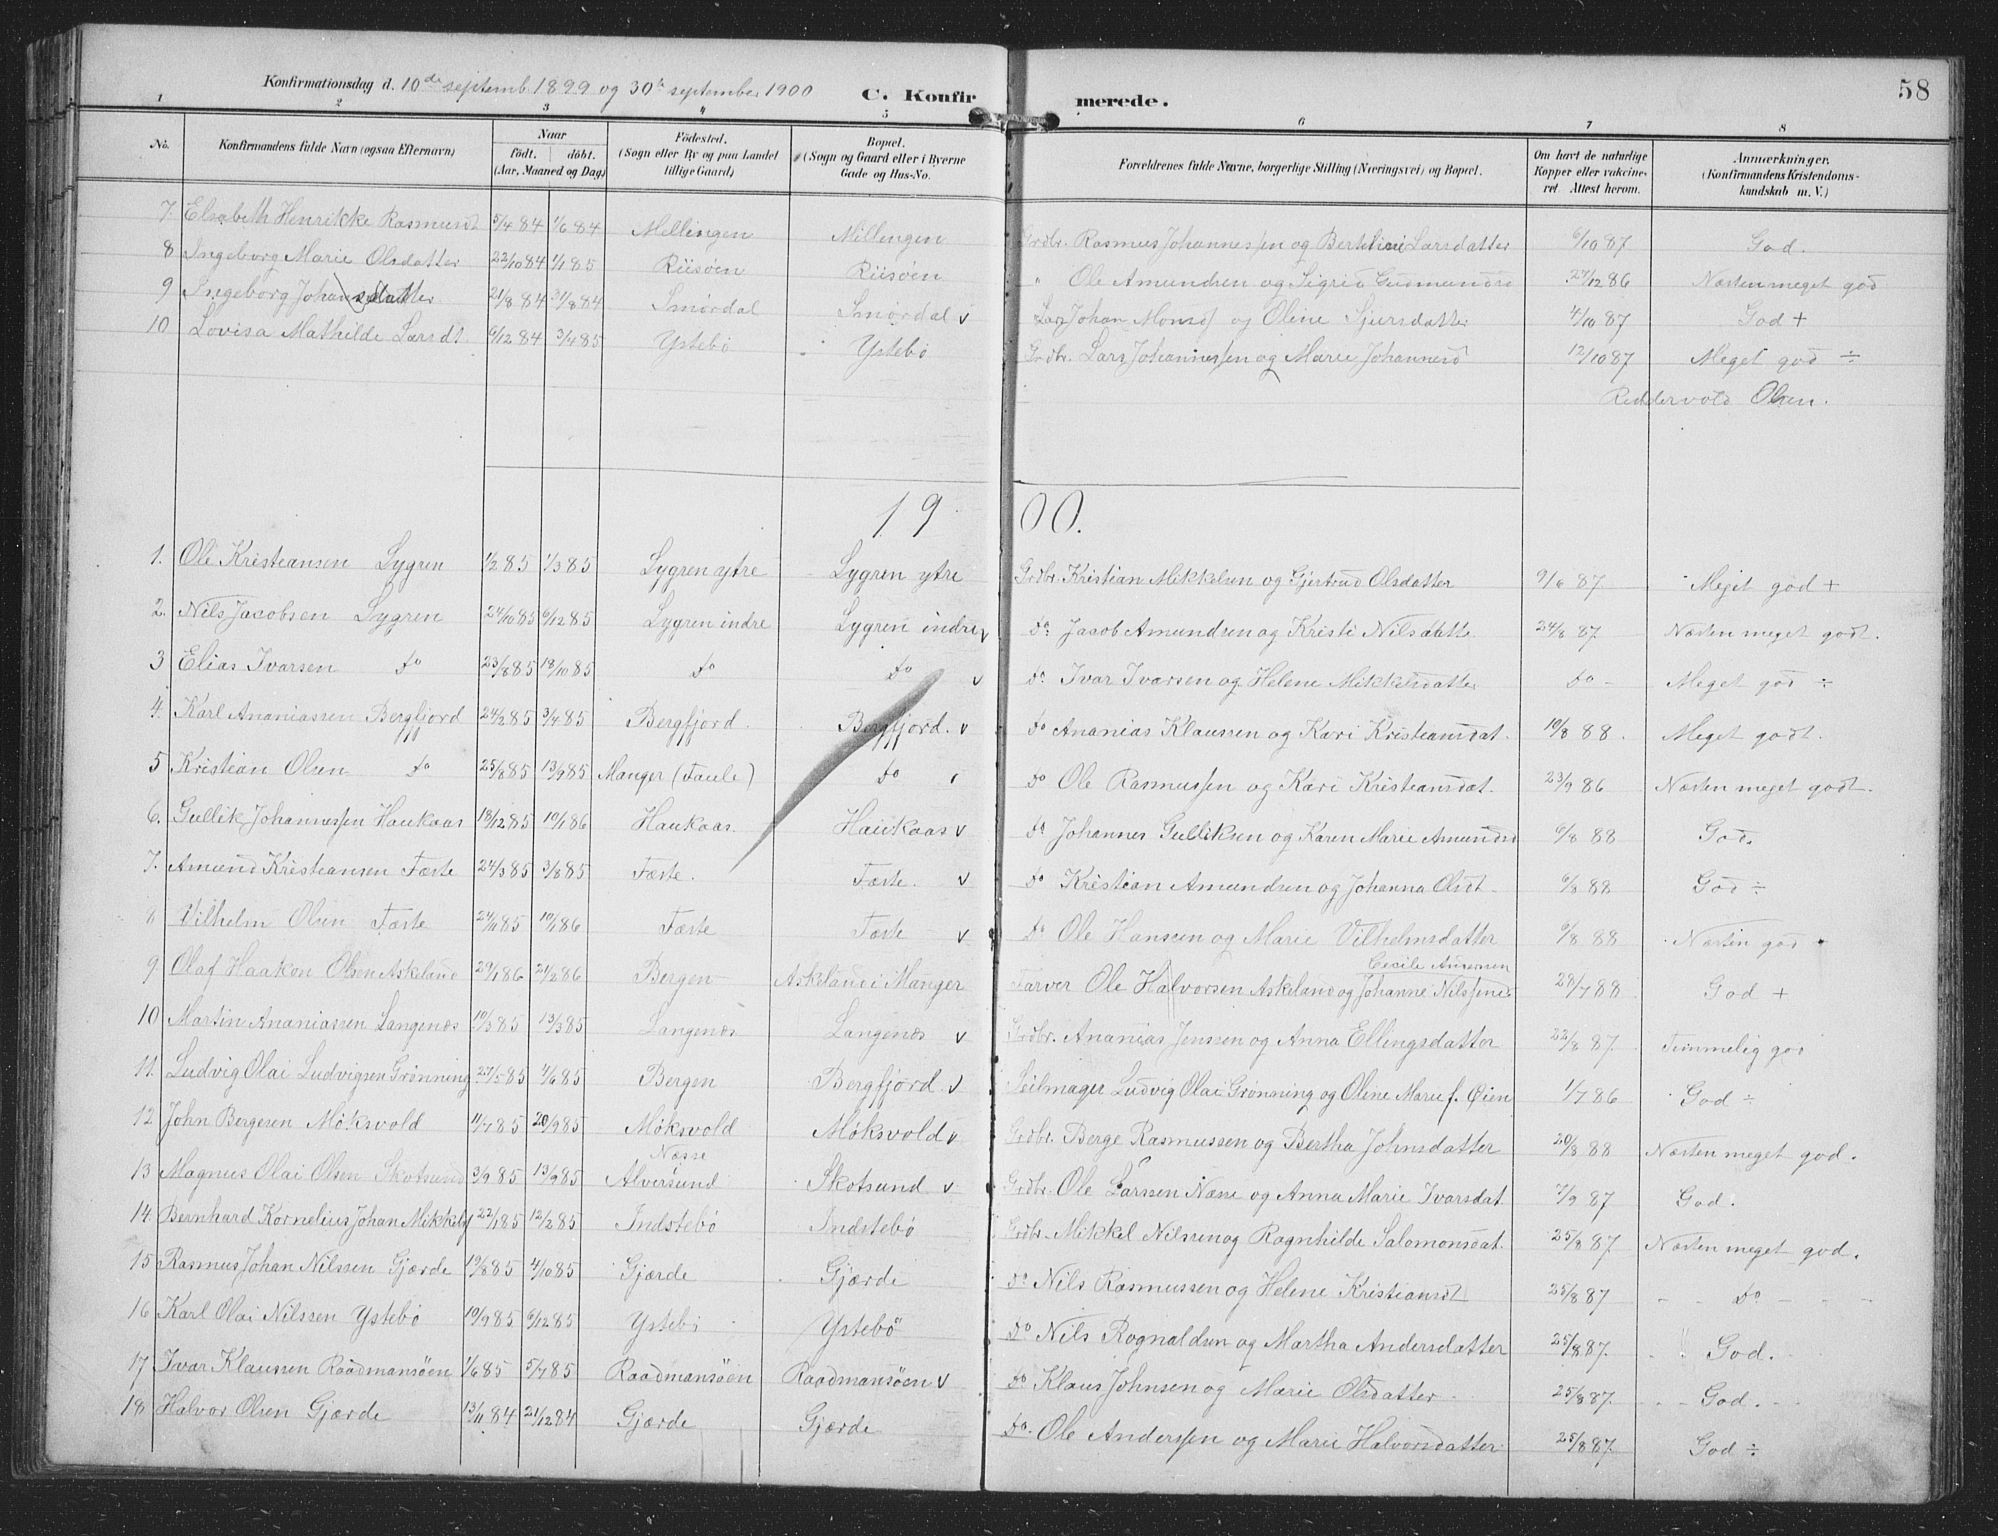 58
Konfirmationsdag d. 10de septemb. 1899 og 30te september 1900
C. Konfirmerede.
1 2 3 4 5 6 7 8
No. Konfirmandens fulde Navn (ogsaa Efternavn) Naar födt. döbt. (Aar, Maaned og Dag) Födested. (Sogn eller By og paa Landet tillige Gaard) Bopæl. (Sogn og Gaard eller i Byerne Gade og Hus-No. Forældrenes fulde Navne, borgerlige Stilling (Næringsvei) og Bopæl. Om havt de naturlige Kopper eller vakcineret. Attest herom. Anmærkninger. (Konfirmandens Kristendomskundskab m. V.)
7 Elisabeth Henrikke Rasmusdt 5/4 84 1/6 84 Millingen Millingen Grdbr. Rasmus Johannessen og Bertilini Larsdatter 6/10 87 God.
8 Ingeborg Marie Olsdatter 22/10 84 1/1 85 Riisøen Riisøen " Ole Amundsen og Sigrid Gudmundsd 27/12 86 Næsten meget god
9 Ingeborg Johansdatter 21/8 84 31/8 84 Smørdal Smørdal v Johan Monsö og Oline Sjursdatter 4/10 87 God +
10 Lovisa Mathilde Larsdt. 6/12 84 3/4 85 Ystebö Ystebö Grdbr. Lars Johannessen og Marie Johannesd 12/10 87 Meget god ÷
Reddervold Olsen.
1900.
1. Ole Kristiansen Lygren 1/2 85 1/3 85 Lygren ytre Lygren ytre Grdbr. Kristian Mikkelsen og Gjertrud Olsdatter 9/6 87 Meget god +
2. Nils Jacobsen Lygren 24/10 85 6/12 85 Lygren indre Lygren indre v do. Jacob Amundsen og Kristi Nilsdatte 24/8 87 Næsten meget godt.
3 Elias Ivarsen do 23/8 85 18/10 85 do do v do. Ivar Ivarsen og Helene Mikkelsdatter do - Meget god ÷
4. Karl Ananiassen Bergfjord 24/2 85 3/4 85 Bergfjord. Bergfjord. v do Ananias Klaussen og Kari Kristiansdat. 10/8 88. Meget godt.
5 Kristian Olsen do 25/8 85 13/9 85 Manger (Faule) do v do Ole Rasmussen og Kari Kristiansdat. 23/9 86 Næsten meget godt.
6. Gullik Johannessen Haukaas 18/12 85 10/1 86 Haukaas. Haukaas v do Johannes Gulliksen og Karen Marie Amundsd 6/8 88 God.
7. Amund Kristiansen Fæste 24/3 85 3/8 85 Fæste. Fæste. v do Kristian Amundsen og Johanna Olsdt. 6/8 88 God ÷
8 Vilhelm Olsen Fæste 24/11 85 10/1 86 Fæste Fæste v do Ole Hansen og Marie Vilhelmsdatter 6/8 88 Næsten god
9 Olaf Haakon Olsen Askeland 29/1 86 21/2 86 Bergen Askeland i Manger Farver Ole Halvorsen Askeland og Johanne Nilssine Cecilie 27/7 88 God +
10 Martin Ananiassen Langenæs 10/3 85 13/3 85 Langenæs Langenæs v Grdbr. Ananias Jenssen og Anna Ellingsdatter 22/8 87. Temmelig god
11. Ludvig Olai Ludvigsen Grønning 27/5 85 1/6 85 Bergen Bergfjord v Seilmager Ludvig Olai Grønning og Oline Marie f. Øien 1/7 86 God ÷
12 John Bergesen Møksvold 11/7 85 20/9 85 Møksvold Møksvold v Grdbr. Berge Rasmussen og Bertha Johnsdatter 20/8 88 Næsten meget god.
13 Magnus Olai Olsen Skotsund 3/9 85 13/9 85 Næsse Alversund Skotsund v Grdbr. Ole Larssen Næse og Anna Marie Ivarsdat. 7/9 87 God.
14 Bernhard Kornelius Johan Mikkels 22/1 85 12/2 85 Indstebö Indstebö Grdbr. Mikkel Nilssen og Ragnhilde Salomonsdat. 25/8 87 Næsten meget god.
15 Rasmus Johan Nilssen Gjærde 19/8 85 4/10 85 Gjærde Gjærde do Nils Rasmussen og Helene Kristiansdt 25/8 87 - - do - - -
16 Karl Olai Nilssen Ystebö 10/9 85 6/12 85 Ystebö Ystebö do Nils Rognaldsen og Martha Andersdatter 25/8 87. God.
17 Ivar Klaussen Raadmansøen 1/6 85 5/7 85 Raadmansøen Raadmansøen v do Klaus Johnsen og Marie Olsdatter 25/8 87. God.
18 Halvor Olsen Gjærde 13/11 84 21/12 84 Gjærde Gjærde do. Ole Anderssen og Marie Halvorsdatter 25/8 87. God ÷